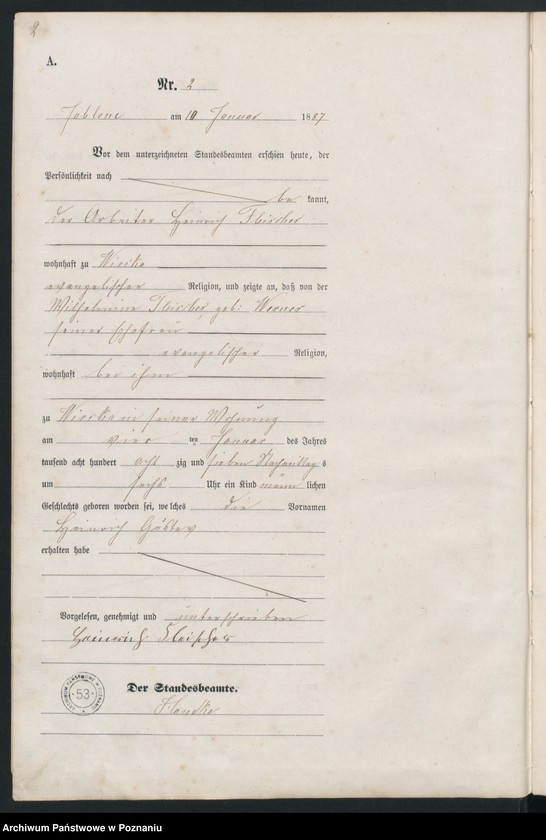 2
A.
Nr. 2
Jablone am 10 Januar 1887
Vor dem unterzeichneten Standesbeamten erschien heute, der
Persönlichkeit nach
be kannt,
der Arbeiter Heinrich Fleischer
wohnhaft zu Wioska
evangelischer Religion, und zeigte an, daß von der
Wilhelmine Fleischer, geb: Werner
seiner Ehefrau
evangelischer Religion,
wohnhaft bei ihm
zu Wioska in seiner Wohnung
am vier ten Januar des Jahres
tausend acht hundert acht zig und sieben Nachmittags
um sechs Uhr ein Kind männ lichen
Geschlechts geboren worden sei, welches die Vornamen
Heinrich Gustav
erhalten habe
Vorgelesen, genehmigt und unterschrieben
Heinrich Fleischer
Der Standesbeamte.
ARCHIWUM PAŃSTWOWE W POZNANIU
53
Archiwum Państwowe w Poznaniu